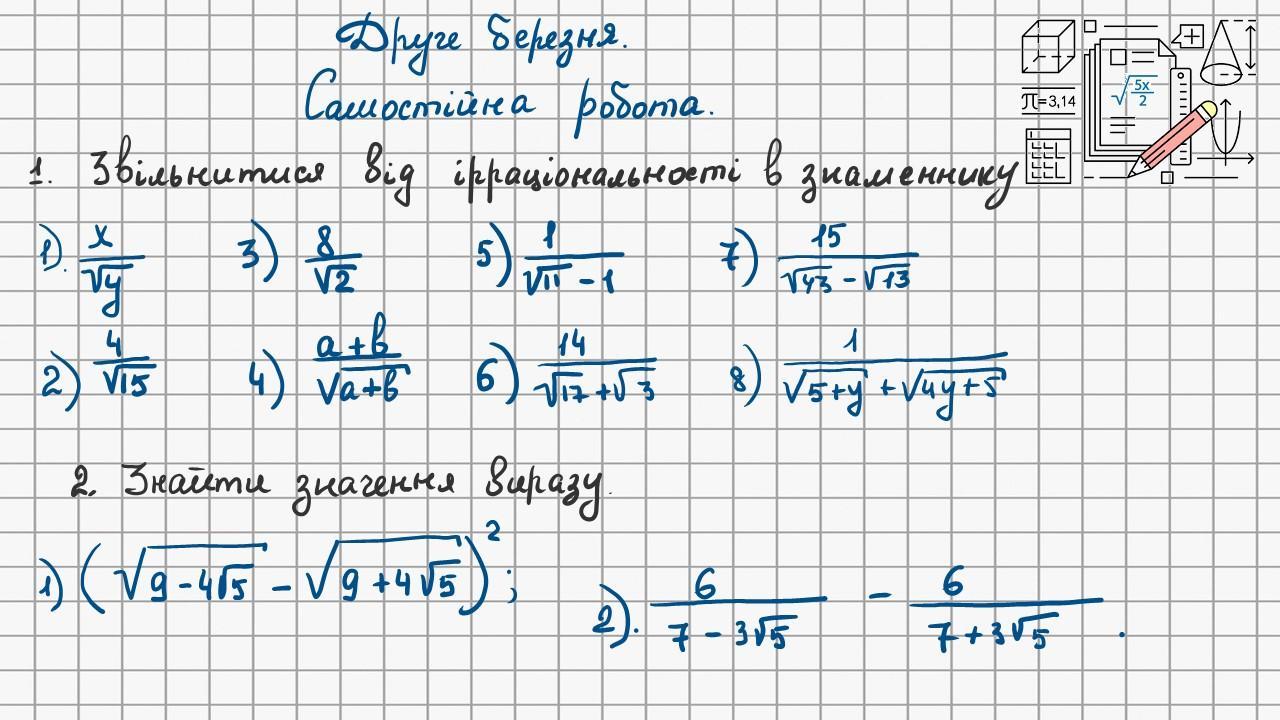 Друге березня.
Самостійна робота.
π=3,14
√(-5x/2)
1. Звільнитися від ірраціональності в знаменнику
1). x/√y 3) 8/√2 5) 1/(√11 - 1) 7) 15/(√43 - √13)
2) 4/√15 4) (a+b)/√(a+b) 6) 14/(√17 + √3) 8) 1/(√(5+y) + √(4y+5))
2. Знайти значення виразу.
1) (√(9 - 4√5) - √(9 + 4√5))²;
2). 6/(7 - 3√5) - 6/(7 + 3√5).